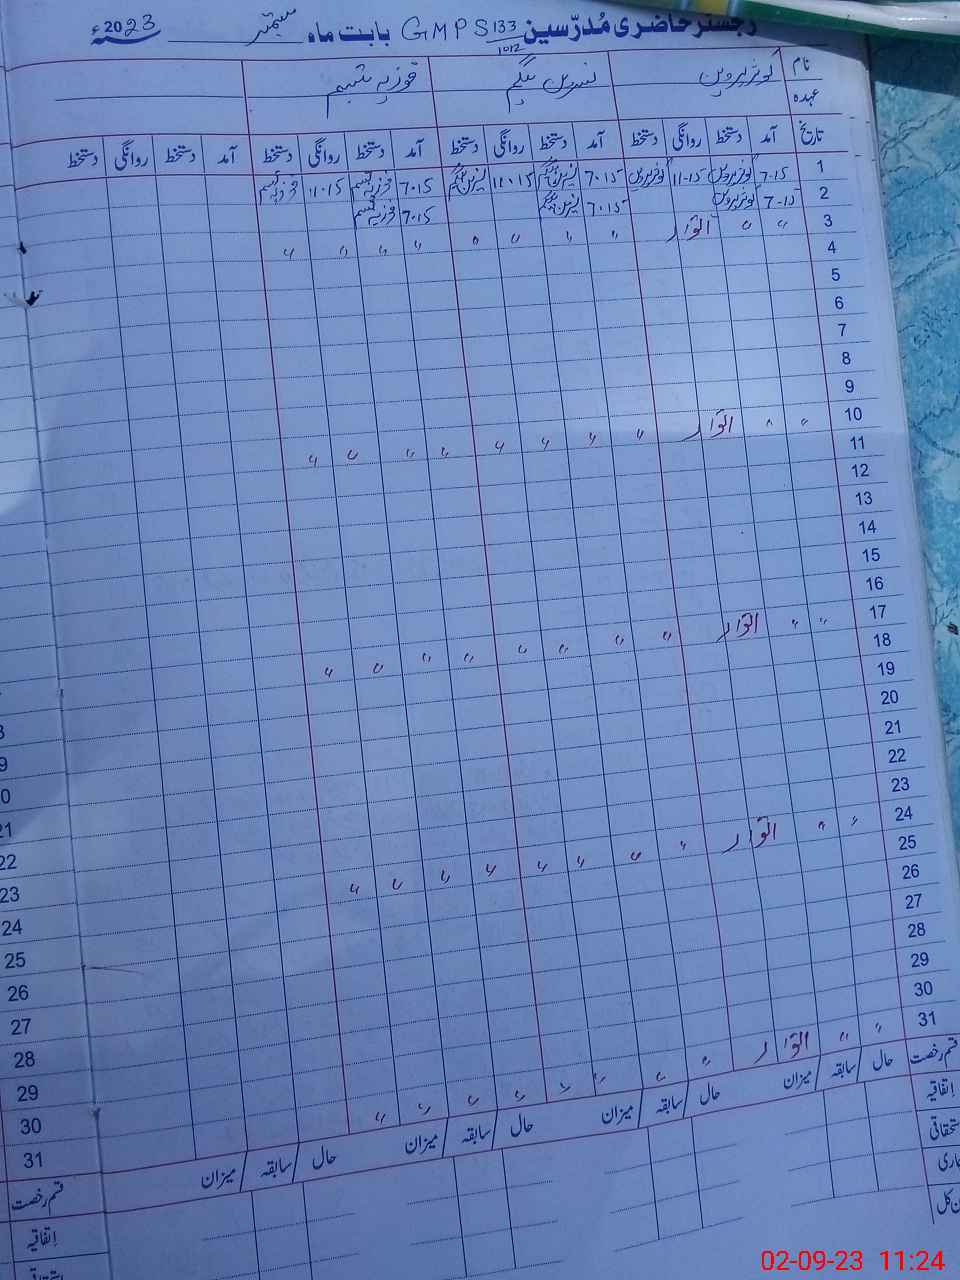 رجسٹر حاضری مُدرّسین GMPS 133 بابت ماہ ستمبر 2023ء
1012
نام کوثر پروین نسرین بیگم فوزیہ شبنم
عہدہ
تاریخ آمد دستخط روانگی دستخط آمد دستخط روانگی دستخط آمد دستخط روانگی دستخط آمد دستخط روانگی دستخط
1 7-15 کوثر پروین 11-15 کوثر پروین 7.15 نسرین بیگم 11.15 نسرین بیگم 7.15 فوزیہ شبنم 11.15 فوزیہ شبنم
2 7-15 کوثر پروین 7.15 نسرین بیگم 7.15 فوزیہ شبنم
3 〃 〃 اتوار 〃 〃 〃 〃 〃 〃 〃 〃
4
5
6
7
8
9
10 〃 〃 اتوار 〃 〃 〃 〃 〃 〃 〃 〃
11
12
13
14
15
16
17 〃 〃 اتوار 〃 〃 〃 〃 〃 〃 〃 〃
18
19
20
21
22
23
24 〃 〃 اتوار 〃 〃 〃 〃 〃 〃 〃 〃
25
26
27
28
29
30
31 〃 〃 اتوار 〃 〃 〃 〃 〃 〃 〃 〃
قسم رخصت حال سابقہ میزان حال سابقہ میزان حال سابقہ میزان حال سابقہ میزان
اتفاقیہ
21
22
23
24
25
26
27
28
29
30
31
قسم رخصت
اتفاقیہ
02-09-23 11:24